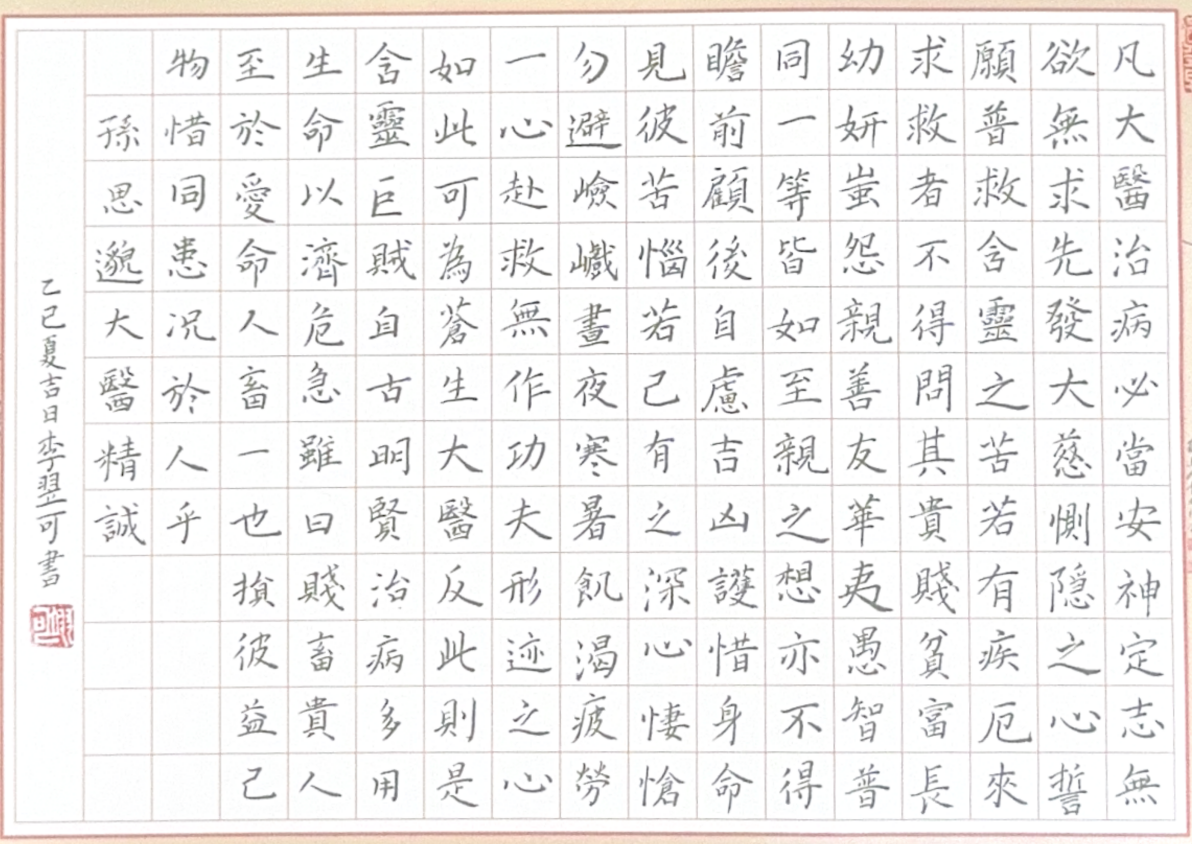 凡大醫治病必當安神定志無
欲無求先發大慈惻隱之心誓
願普救含靈之苦若有疾厄來
求救者不得問其貴賤貧富長
幼妍蚩怨親善友華夷愚智普
同一等皆如至親之想亦不得
瞻前顧後自慮吉凶護惜身命
見彼苦惱若己有之深心悽愴
勿避嶮巇晝夜寒暑飢渴疲勞
一心赴救無作功夫形迹之心
如此可為蒼生大醫反此則是
含靈巨賊自古明賢治病多用
生命以濟危急雖曰賤畜貴人
至於愛命人畜一也損彼益己
物惜同患况於人乎
孫思邈大醫精誠
乙巳夏吉日李翌可書